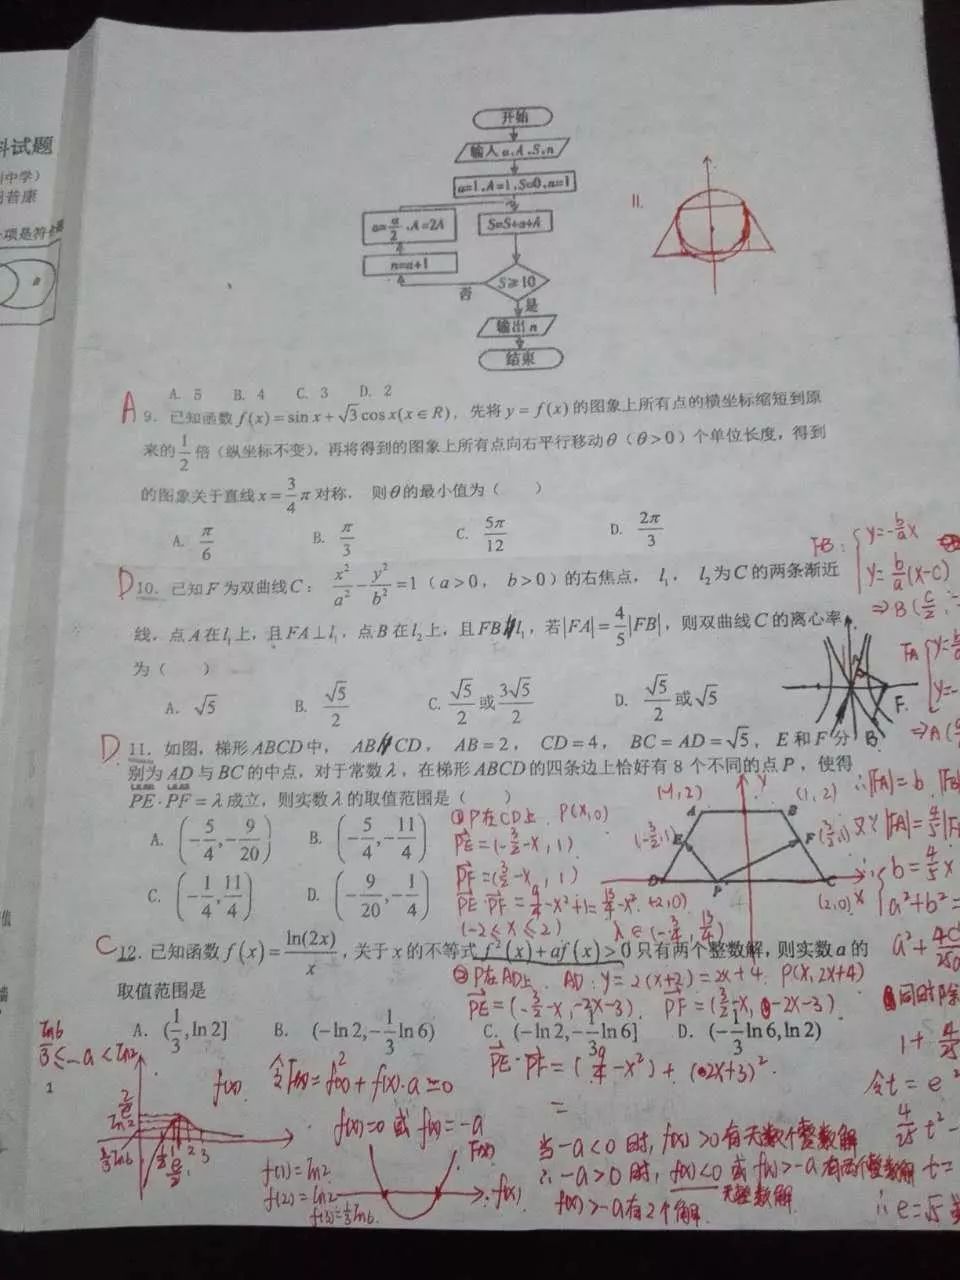 科试题
中学）
开始
输入 a,A,S,n
a=1,A=1,S=0,n=1
a=a/2,A=2A
S=S+a+A
n=n+1
S≥10
否
是
输出 n
结束
11.
A. 5 B. 4 C. 3 D. 2
A 9. 已知函数 f(x)=sin x+√3cos x(x∈R)，先将 y=f(x) 的图象上所有点的横坐标缩短到原
来的 1/2 倍（纵坐标不变），再将得到的图象上所有点向右平行移动θ（θ>0）个单位长度，得到
的图象关于直线 x=3/4π 对称， 则θ的最小值为（ ）
A. π/6 B. π/3 C. 5π/12 D. 2π/3
D 10. 已知 F 为双曲线C： x²/a²-y²/b²=1（a>0，b>0）的右焦点，l₁，l₂为C的两条渐近
线，点 A 在 l₁ 上，且 FA⊥l₁，点 B 在 l₂ 上，且 FB∥l₁，若|FA|=4/5|FB|，则双曲线 C 的离心率
为（ ）
A. √5 B. √5/2 C. √5/2 或 3√5/2 D. √5/2 或 √5
FB: y=-b/a x
y=b/a(x-c)
FA
F
B
D 11. 如图，梯形 ABCD 中， AB∥CD， AB=2， CD=4， BC=AD=√5，E 和 F 分
别为 AD 与 BC 的中点，对于常数λ，在梯形 ABCD 的四条边上恰好有 8 个不同的点 P，使得
PE·PF=λ成立，则实数λ的取值范围是（ ）
A. (-5/4,-9/20) B. (-5/4,-11/4)
C. (-1/4,11/4) D. (-9/20,-1/4)
①P在CD上. P(x,0)
PE=(-3/2-x,1)
PF=(3/2-x,1)
(-2≤x≤2)
(-1,2) (1,2)
A B
E F
D P C
y
x
(2,0)
∴|FA|=b
b=4/5
a²+b²=
C 12. 已知函数 f(x)=ln(2x)/x，关于 x 的不等式 f²(x)+af(x)>0 只有两个整数解，则实数 a 的
取值范围是
②P在AD上. AD: y=2(x+2)=2x+4. P(x,2x+4)
PE=(-3/2-x,-2x-3). PF=(3/2-x,-2x-3).
A. (1/3,ln2] B. (-ln2,-1/3ln6) C. (-ln2,-1/3ln6] D. (-1/3ln6,ln2)
PE·PF=(9/4-x²)+(2x+3)².
=
ln6/3≤-a<ln2
f(x)
令F(x)=f²(x)+f(x)·a=0
f(x)=0 或 f(x)=-a
f(1)=ln2
f(2)=ln2
f(3)=1/3ln6
F(x)
f(x)
当-a<0时, f(x)>0有无数个整数解
∴-a>0时, f(x)<0 或 f(x)>-a有两个整数解
无整数解
f(x)>-a有2个解.
同时除
令t=e²
∴e=√5
1